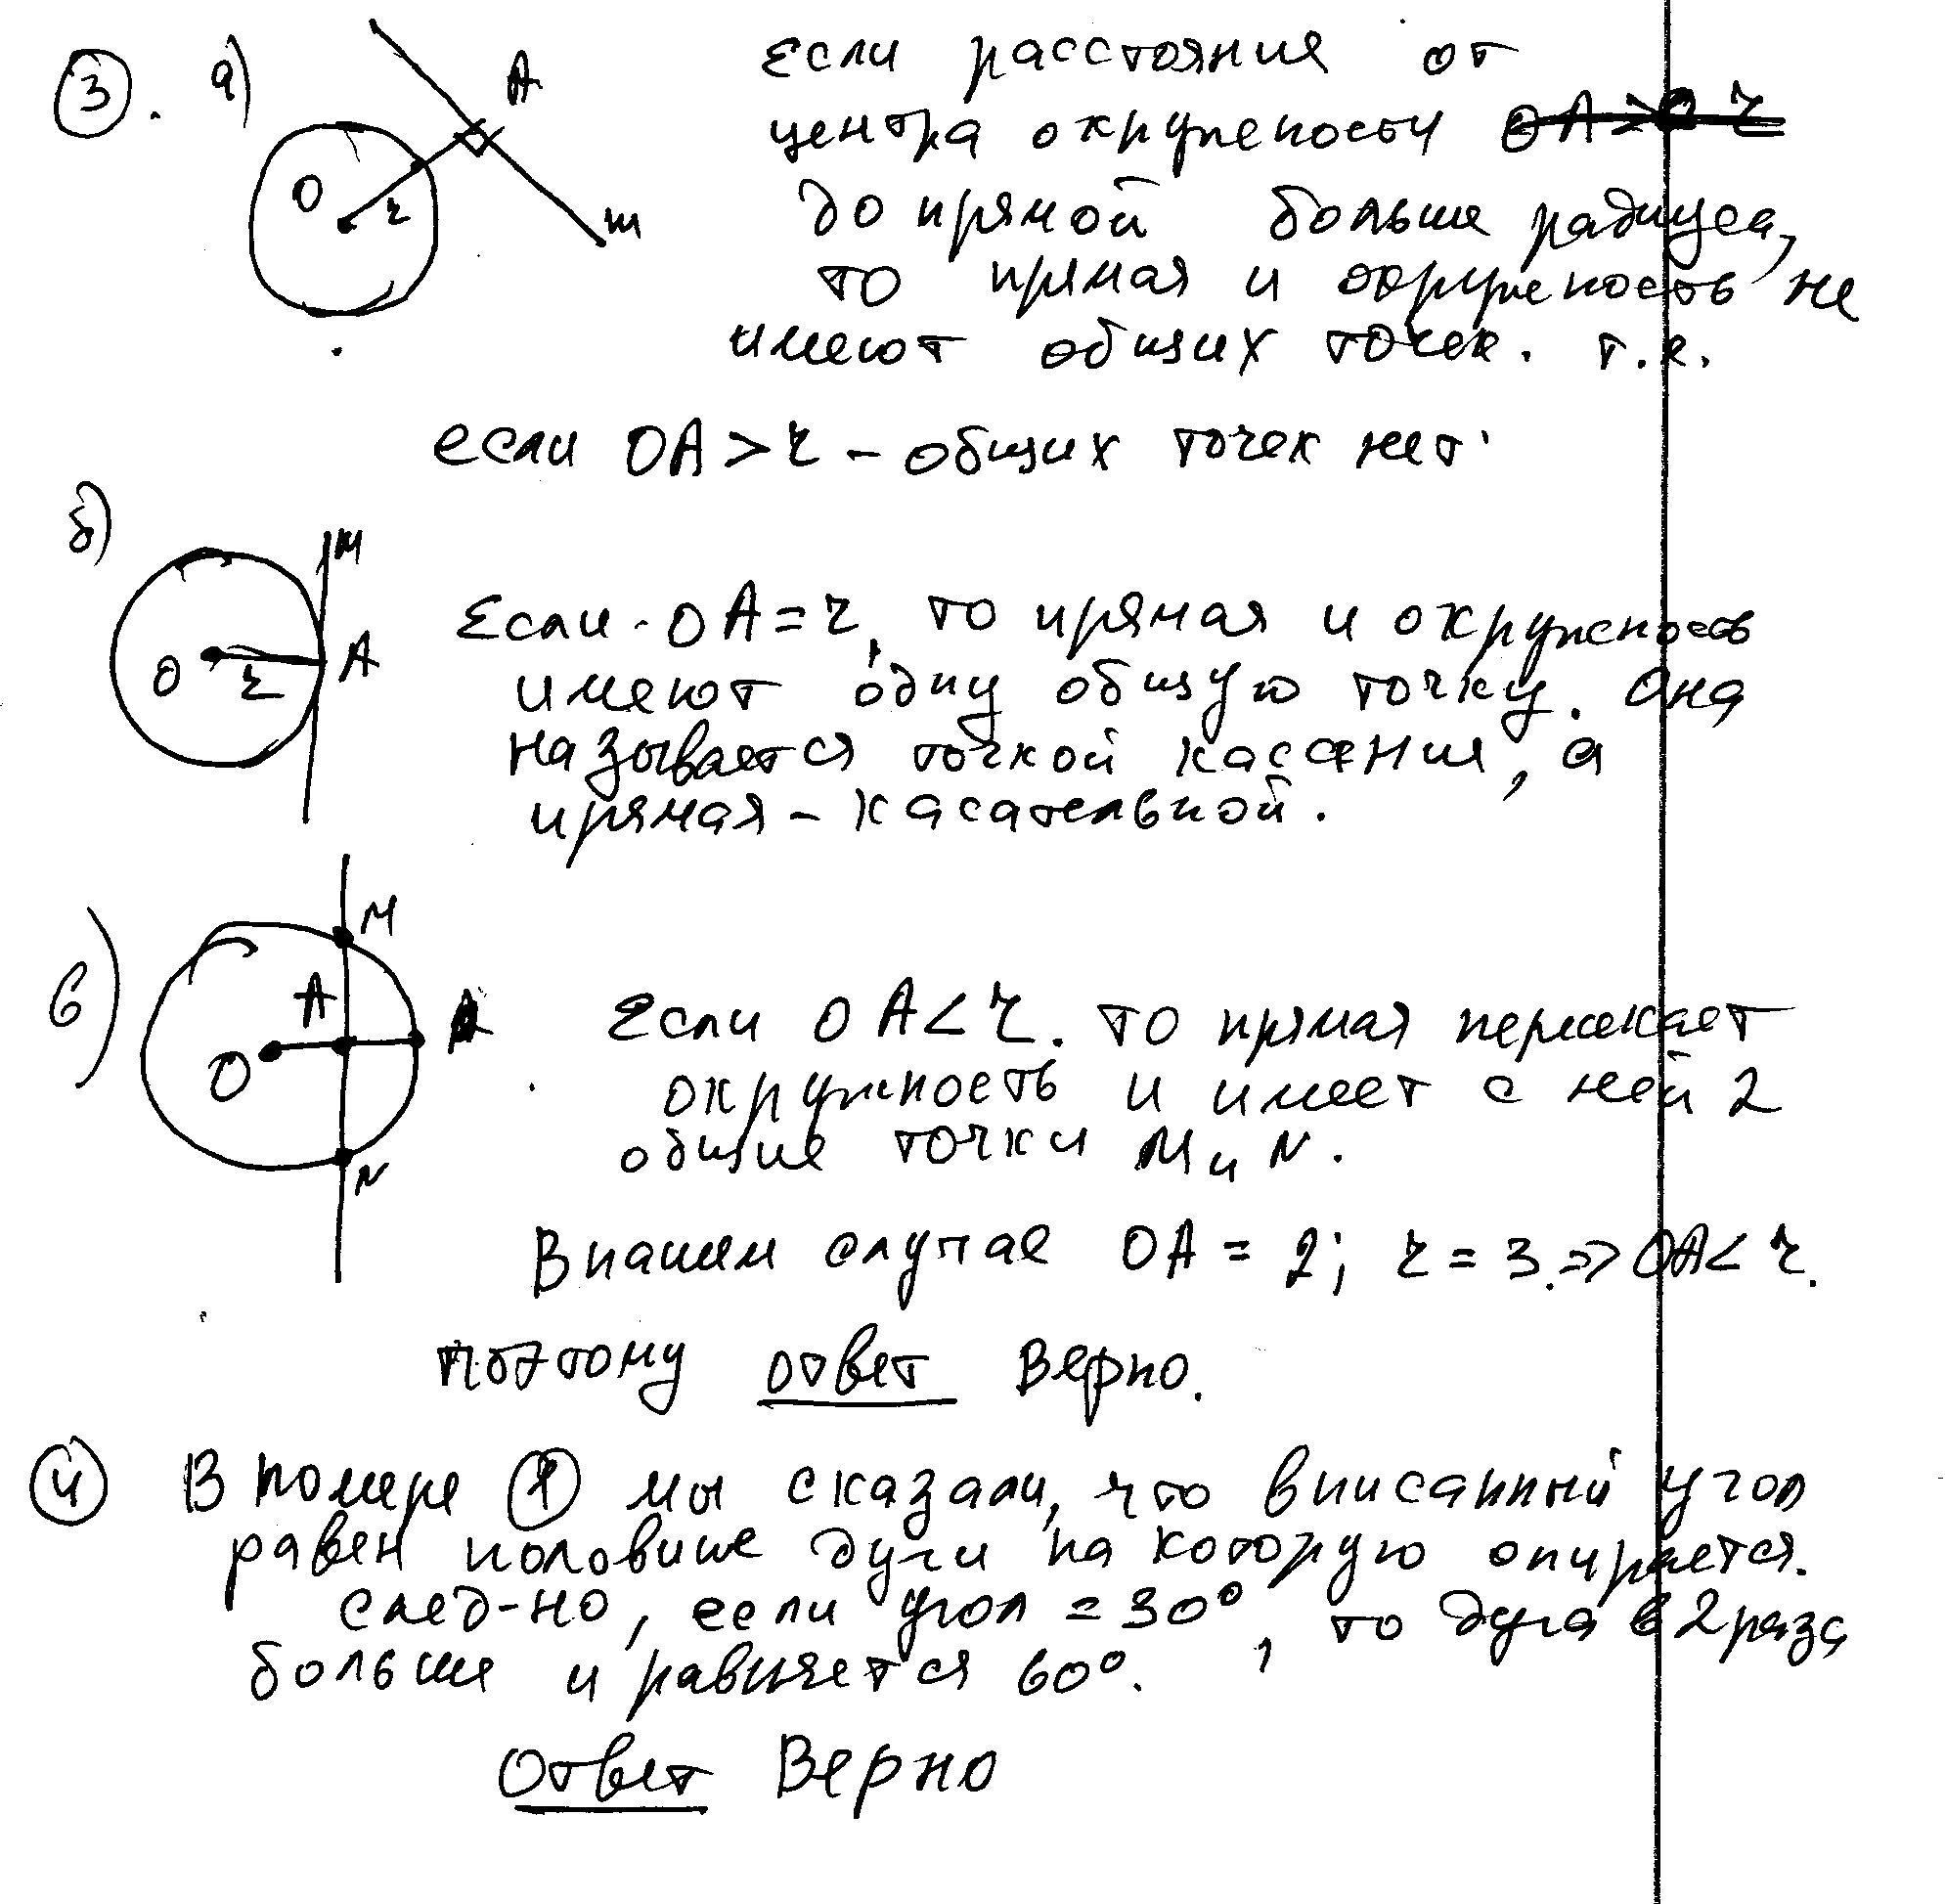 3. а) А Если расстояния от
центра окружности ОА > r
О r m до прямой больше радиуса,
то прямая и окружность не
имеют общих точек. т.е.
если ОА > r – общих точек нет
б) m
О r А Если ОА = r, то прямая и окружность
имеют одну общую точку. Она
называется точкой касания, а
прямая – касательной.
в) М
А
О Если ОА < r. то прямая пересекает
окружность и имеет с ней 2
N общие точки М и N.
В нашем случае ОА = 2; r = 3. => ОА < r.
поэтому ответ Верно.
4 В номере 1 мы сказали, что вписанный угол
равен половине дуги на которую опирается.
след-но, если угол = 30°, то дуга в 2 раза
больше и равняется 60°.
Ответ Верно